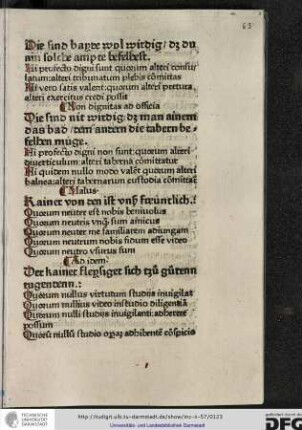 63
Die sind bayde wol wirdig / dz du
am solche ampte befelhest.
Hi profecto digni sunt quorum alteri consu-
latum: alteri tribunatum plebis cōmittas
Hi vero satis valent: quorum alteri pretura
alteri exercitus credi possit
¶ Non dignitas ad officia
Die sind nit wirdig / dz man ainem
das bad / dem andern die tabern be-
felhen müge.
Hi profecto digni non sunt: quorum alteri
diuerticulum: alteri taberna cōmittatur
Hi quidem nullo modo valēt quorum alteri
balnea: alteri tabernarum custodia cōmittat
¶ Malus.
Kainer von den ist vnß freüntlich.
Quorum neuter est nobis beniuolus
Quorum neutris vnq̄ sum amicus
Quorum neuter me familiarem adiungam
Quorum neutrum nobis fidum esse video
Quorum neutro vsurus sum
¶ Ad idem
Der kainer fleysiget sich tzů gůtenn
tugendenn:
Quorum nullus virtutum studijs inuigilat
Quorum nullius video in studio diligentiā
Quorum nulli studijs inuigilanti: adherere
possum
Quorū nullū studio adhibentē cōspicio
TECHNISCHE
UNIVERSITÄT
DARMSTADT
http://tudigit.ulb.tu-darmstadt.de/show/inc-ii-57/0123
Universitäts- und Landesbibliothek Darmstadt